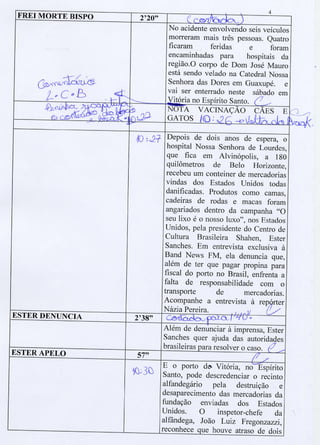 4
FREI MORTE BISPO
2'20"
(cortado)
No acidente envolvendo seis veículos
morreram mais três pessoas. Quatro
ficaram feridas e foram
encaminhadas para hospitais da
região.O corpo de Dom José Mauro
está sendo velado na Catedral Nossa
Senhora das Dores em Guaxupé. e
vai ser enterrado neste sábado em
Vitória no Espírito Santo.
Comentários
L.C.B
NOTA VACINAÇÃO CÃES E
GATOS
10:26
10:22
10:27
Depois de dois anos de espera, o
hospital Nossa Senhora de Lourdes,
que fica em Alvinópolis, a 180
quilômetros de Belo Horizonte,
recebeu um conteiner de mercadorias
vindas dos Estados Unidos todas
danificadas. Produtos como camas,
cadeiras de rodas e macas foram
angariados dentro da campanha "O
seu lixo é o nosso luxo", nos Estados
Unidos, pela presidente do Centro de
Cultura Brasileira Shahen, Ester
Sanches. Em entrevista exclusiva à
Band News FM, ela denuncia que,
além de ter que pagar propina para
fiscal do porto no Brasil, enfrenta a
falta de responsabilidade com o
transporte de mercadorias.
Acompanhe a entrevista à repórter
Názia Pereira.
ESTER DENUNCIA
2'38"
Cortada para 1'40"
Além de denunciar à imprensa, Ester
Sanches quer ajuda das autoridades
brasileiras para resolver o caso.
ESTER APELO
57"
10:30
E o porto de Vitória, no Espírito
Santo, pode descredenciar o recinto
alfandegário pela destruição e
desaparecimento das mercadorias da
fundação enviadas dos Estados
Unidos. O inspetor-chefe da
alfândega, João Luiz Fregonzazzi,
reconhece que houve atraso de dois